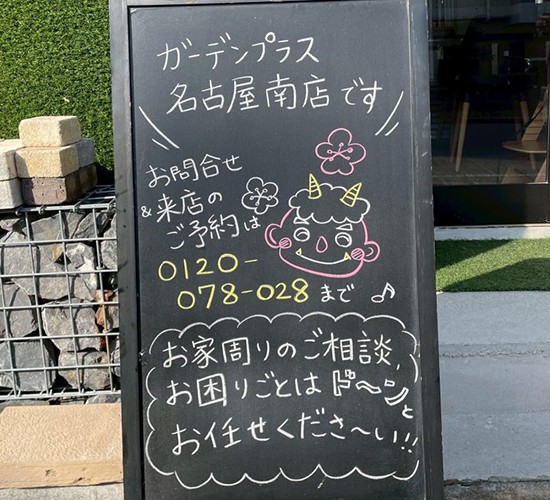 ガーデンプラス
名古屋南店です
お問合せ
&来店の
ご予約は
0120-
078-028まで♪
お家周りのご相談、
お困りごとはド〜ンと
お任せくださ〜い!!